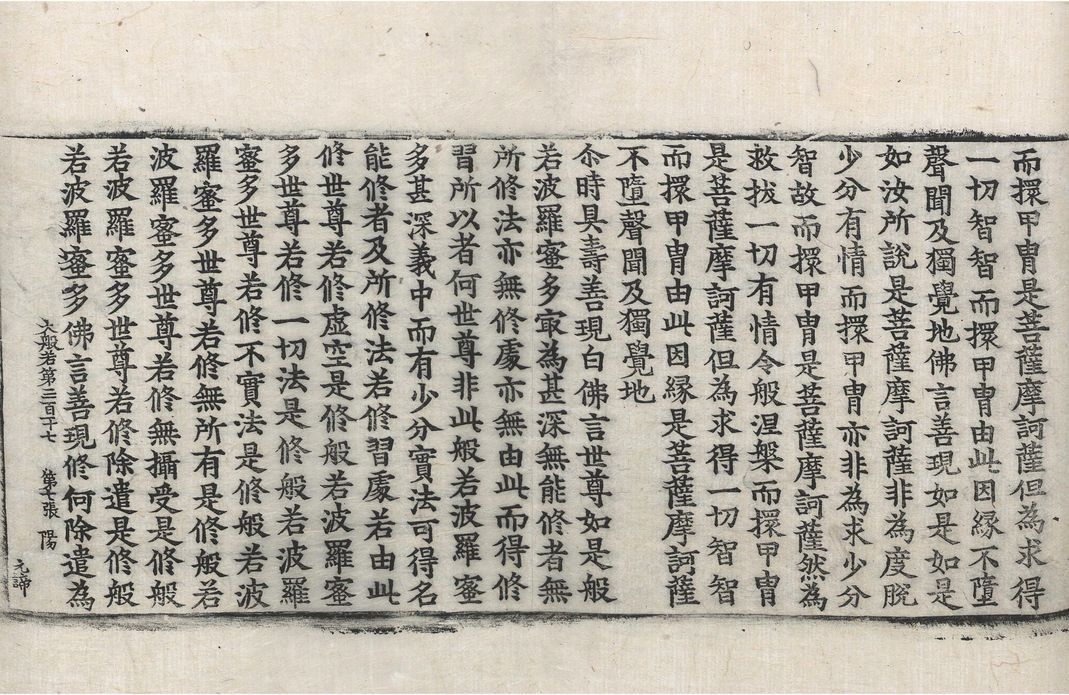 而擐甲冑是菩薩摩訶薩但為求得
一切智智而擐甲冑由此因縁不墮
聲聞及獨覺地佛言善現如是如是
如汝所說是菩薩摩訶薩非為度脫
少分有情而擐甲冑亦非為求少分
智故而擐甲冑是菩薩摩訶薩然為
救拔一切有情令般涅槃而擐甲冑
是菩薩摩訶薩但為求得一切智智
而擐甲冑由此因縁是菩薩摩訶薩
不墮聲聞及獨覺地
尒時具壽善現白佛言世尊如是般
若波羅蜜多㝡為甚深無能修者無
所修法亦無修處亦無由此而得修
習所以者何世尊非此般若波羅蜜
多甚深義中而有少分實法可得名
能修者及所修法若修習處若由此
修世尊若修虛空是修般若波羅蜜
多世尊若修一切法是修般若波羅
蜜多世尊若修不實法是修般若波
羅蜜多世尊若修無所有是修般若
波羅蜜多世尊若修無攝受是修般
若波羅蜜多世尊若修除遣是修般
若波羅蜜多佛言善現修何除遣為
大般若第三百十七 第七張 陽
元諦